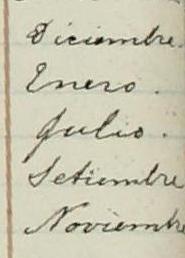 Diciembre.
Enero.
Julio.
Setiembre
Noviembre